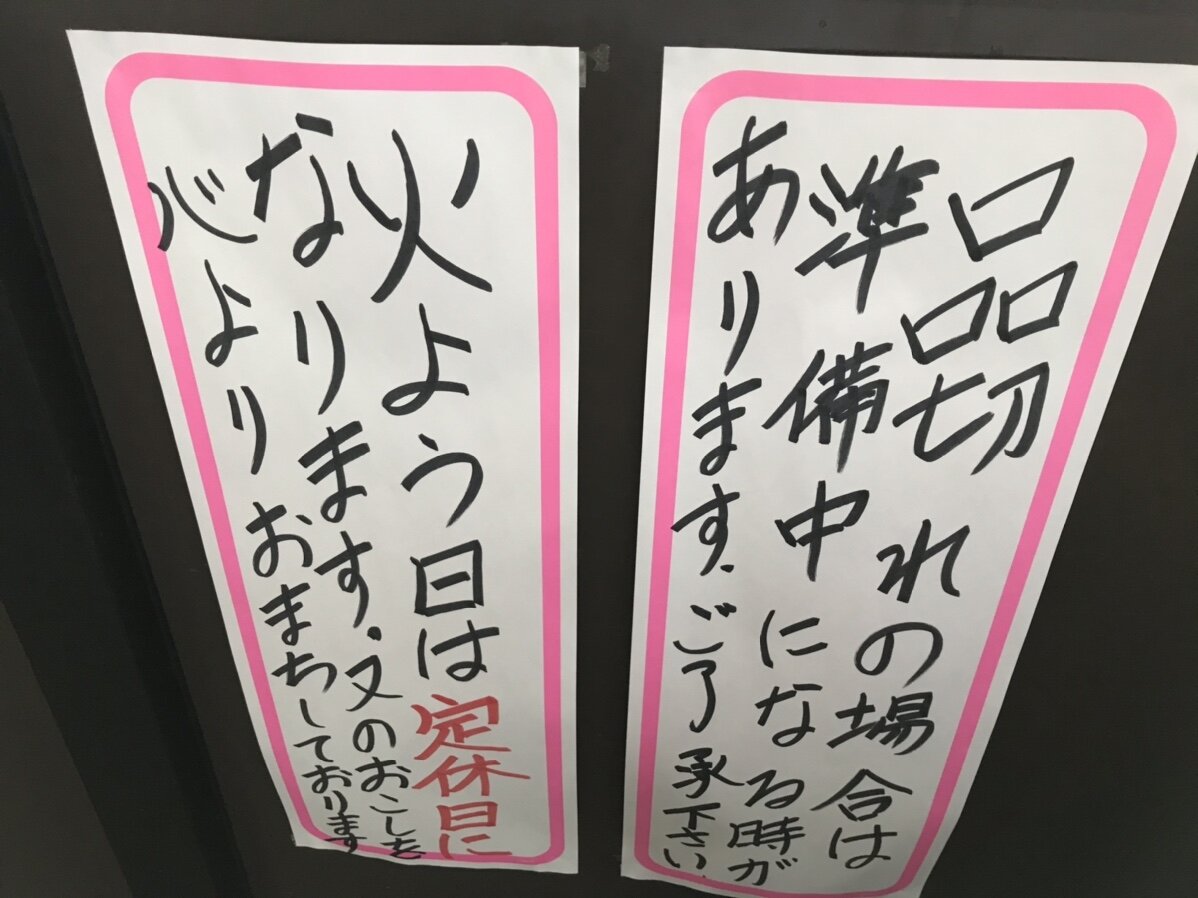 品切れの場合は
準備中になる時が
あります.ご了承下さい.
火よう日は定休日に
なります.又のおこしを
心よりおまちしております